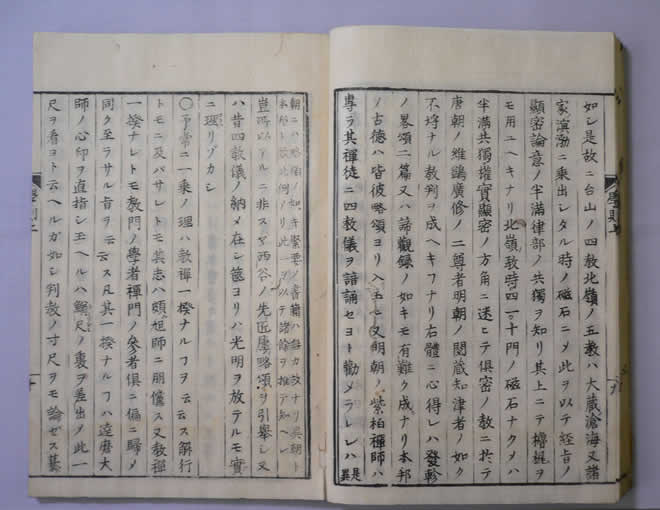 如シ是故ニ台山ノ四教北嶺ノ五教ハ大蔵滄海又諸
家溟渤ニ乗出シタル時ノ磁石ニメ此ヲ以テ諸旨ノ
顕密論意ノ半満律部ノ共獨ヲ知リ其上ニテ櫓梶ヲ
モ用ユヘキナリ北嶺教時四一十門ノ磁石ナクメハ
半満共獨権實顕密ノ方角ニ迷ヒテ俱密ノ教ニ於テ
唐朝ノ維鷁廣修ノ二尊者明朝ノ閲蔵知津者ノ如ク
不埒ナル教判ヲ成ヘキフナリ右體ニ心得レハ發軫
ノ畧頌二篇又ハ諦觀録ノ如キモ有難ク成ナリ本邦
ノ古德ハ皆彼略頌ヨリ入玉ヘ又明朝ノ紫柏禪師ハ
専ラ其禪徒ニ四教儀ヲ諳誦セヨト勸メラレシハ是
異
學則上
朝ニハ略頌ノ如キ緊要ノ書籍ハ
豈啻以テルニ非スヤ西谷ノ先匠畧略頌ヲ引擧シ又
ハ昔四教儀ノ納メ在シ篋ヨリハ光明ヲ放テルモ實
ニ理リゾカシ
〇予常ニ一乗ノ理ハ教禪一揆ナルフヲ云云ス解行
トモニ及バサレトモ其志ハ頗姮師ニ朋儻ス又教禪
一揆ナレトモ教門ノ學者禪門ノ參者俱ニ偏ニ歸メ
同ク至ラサル旨ヲ云云ス凡其一揆ナルフハ達磨大
師ノ心印ヲ直指シ玉ヘルハ鯨尺ノ裏ヲ差出メ此一
尺ヲ看ヨト云ヘルガ如シ判教ノ寸尺ヲモ論ゼス墓
學則上